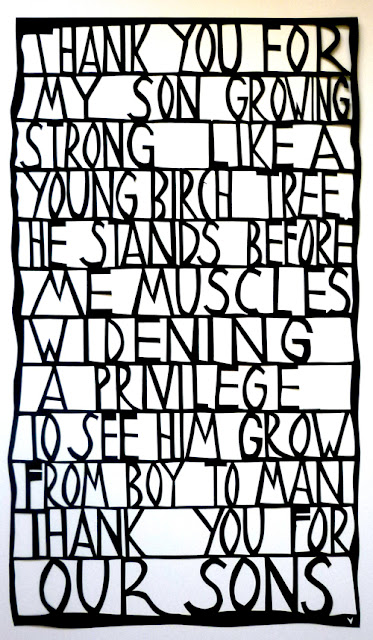 THANK YOU FOR
MY SON GROWING
STRONG LIKE A
YOUNG BIRCH TREE.
HE STANDS BEFORE
ME MUSCLES
WIDENING
A PRIVILEGE
TO SEE HIM GROW
FROM BOY TO MAN
THANK YOU FOR
OUR SONS